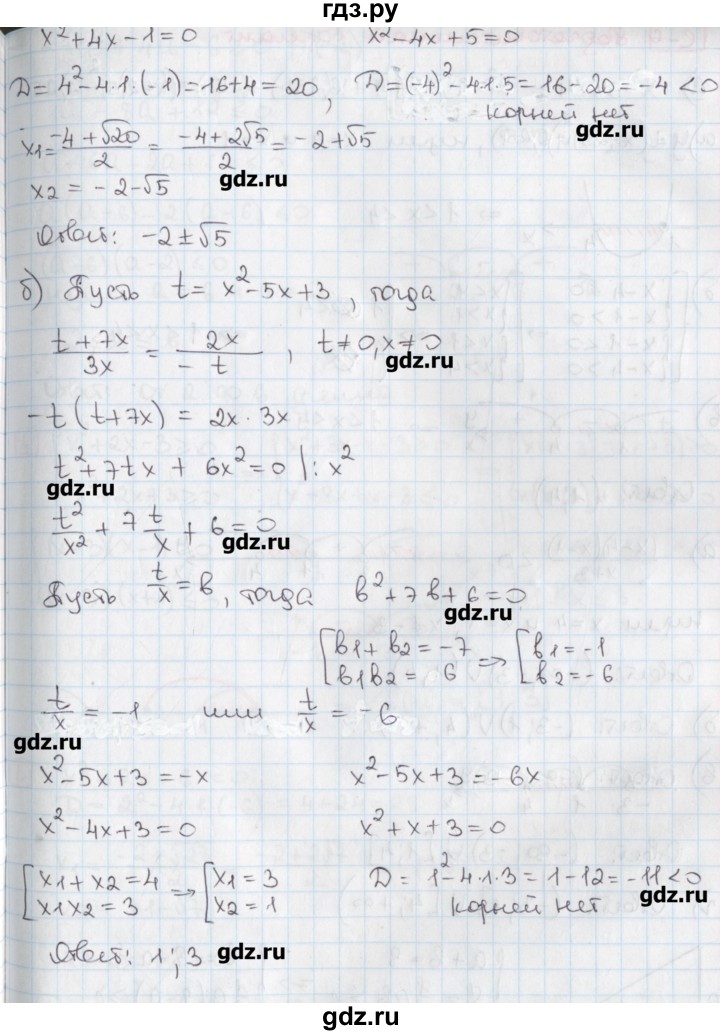 гдз.ру
x²+4x-1=0 x²-4x+5=0
D=4²-4·1·(-1)=16+4=20, D=(-4)²-4·1·5=16-20=-4<0
корней нет
gdz.ru
x1=(-4+√20)/2=(-4+2√5)/2=-2+√5
gdz.ru
x2=-2-√5
Ответ: -2±√5
б) Пусть t=x²-5x+3, тогда
(t+7x)/3x = 2x/-t, t≠0, x≠0
gdz.ru
-t(t+7x)=2x·3x
t²+7tx+6x²=0 |:x²
gdz.ru
t²/x²+7t/x+6=0
gdz.ru
Пусть t/x=в, тогда в²+7в+6=0
gdz.ru
[в1+в2=-7 => [в1=-1
в1в2=6 в2=-6
t/x=-1 или t/x=-6
gdz.ru
x²-5x+3=-x x²-5x+3=-6x
x²-4x+3=0 x²+x+3=0
[x1+x2=4 => [x1=3 D=1²-4·1·3=1-12=-11<0
x1x2=3 x2=1 корней нет
gdz.ru
Ответ: 1; 3 gdz.ru
gdz.ru